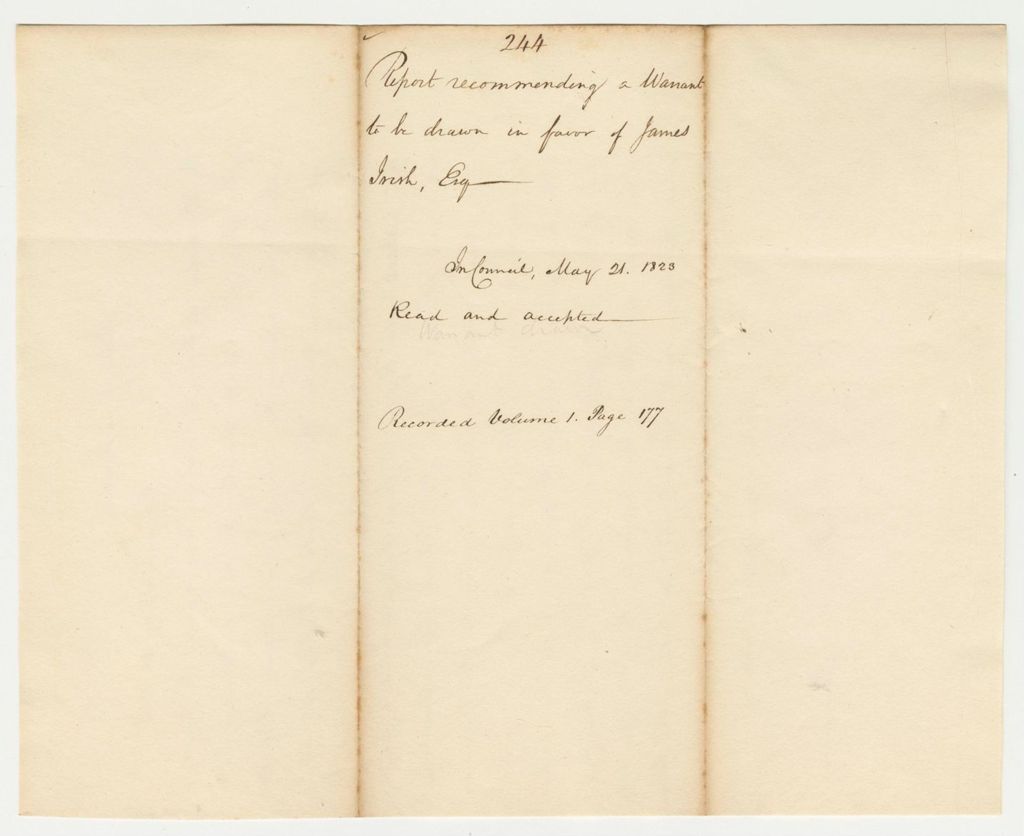 244
Report recommending a Warrant
to be drawn in favor of James
Irish, Esq
In Council, May 21. 1823
Read and accepted
Warrant drawn
Recorded Volume 1. Page 177